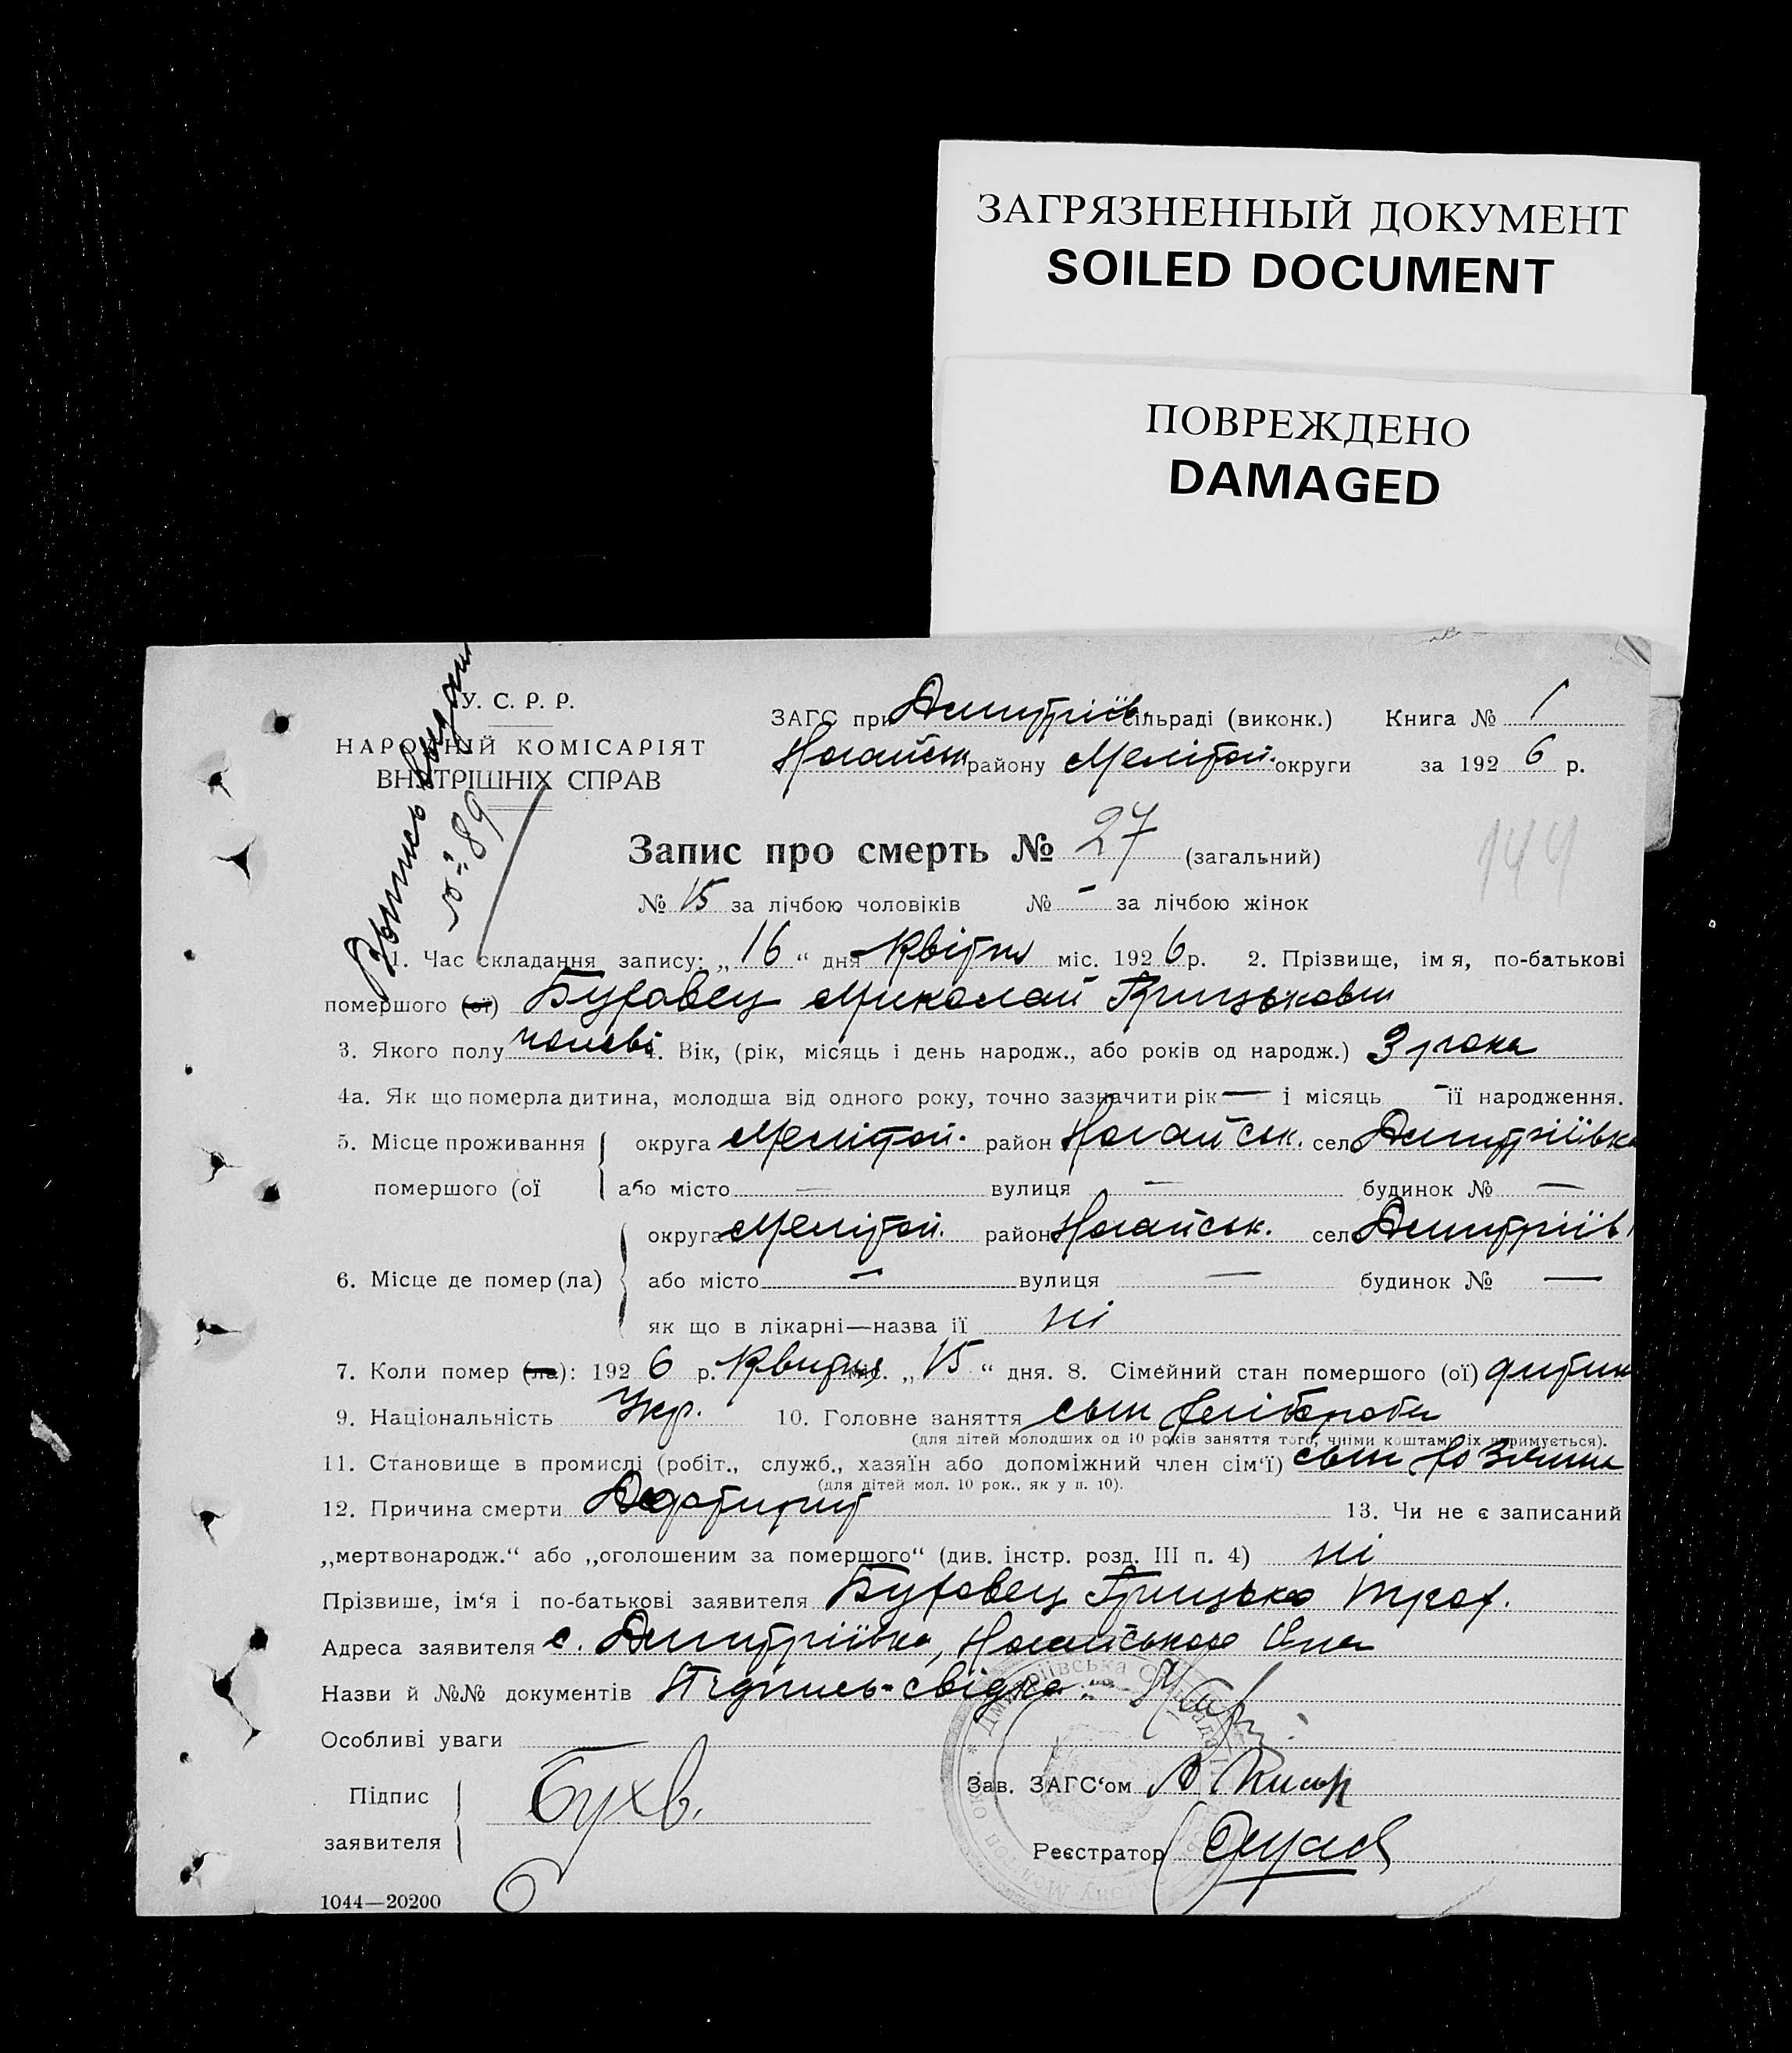 ЗАГРЯЗНЕННЫЙ ДОКУМЕНТ
SOILED DOCUMENT
ПОВРЕЖДЕНО
DAMAGED
У. С. Р. Р.
НАРОДНІЙ КОМІСАРІЯТ
ВНУТРІШНІХ СПРАВ
№ 89
ЗАГС при Дмитріїв. сільраді (виконк.) Книга № 1
Ногайськ району Мелітоп. округи за 1926 р.
Запис про смерть № 27 (загальний)
144
№ 15 за лічбою чоловіків № – за лічбою жінок
1. Час складання запису: „16“ дня Квітня міс. 1926 р. 2. Прізвище, імя, по-батькові
помершого (ої) Буховец Миколай Грицькович
3. Якого полу чолові 4. Вік, (рік, місяць і день народж., або років од народж.) 3 рока
4а. Як що померла дитина, молодша від одного року, точно зазначити рік — і місяць – її народження.
5. Місце проживання помершого (ої округа Мелітоп. район Ногайськ. село Дмитріївка
або місто — вулиця — будинок № —
6. Місце де помер (ла) округа Мелітоп. район Ногайськ. село Дмитріїв
або місто — вулиця — будинок № —
як що в лікарні—назва її ні
7. Коли помер (ла): 1926 р. Квитня міс. „15“ дня. 8. Сімейний стан помершого (ої) дитин
9. Національність Укр. 10. Головне заняття сын хлібороба
(для дітей молодших од 10 років заняття того, чиїми коштами їх утримується).
11. Становище в промислі (робіт., служб., хазяїн або допоміжний член сім'ї) сын хозяина
(для дітей мол. 10 рок., як у п. 10).
12. Причина смерти 13. Чи не є записаний
„мертвонародж.“ або „оголошеним за помершого“ (див. інстр. розд. III п. 4) ні
Прізвише, ім'я і по-батькові заявителя Буховец Грицько Троф.
Адреса заявителя с. Дмитріївка, Ногайського
Назви й №№ документів Підпись свідка:
Особливі уваги —
Підпис заявителя Бухв.
Зав. ЗАГС'ом
Реєстратор
1044—20200